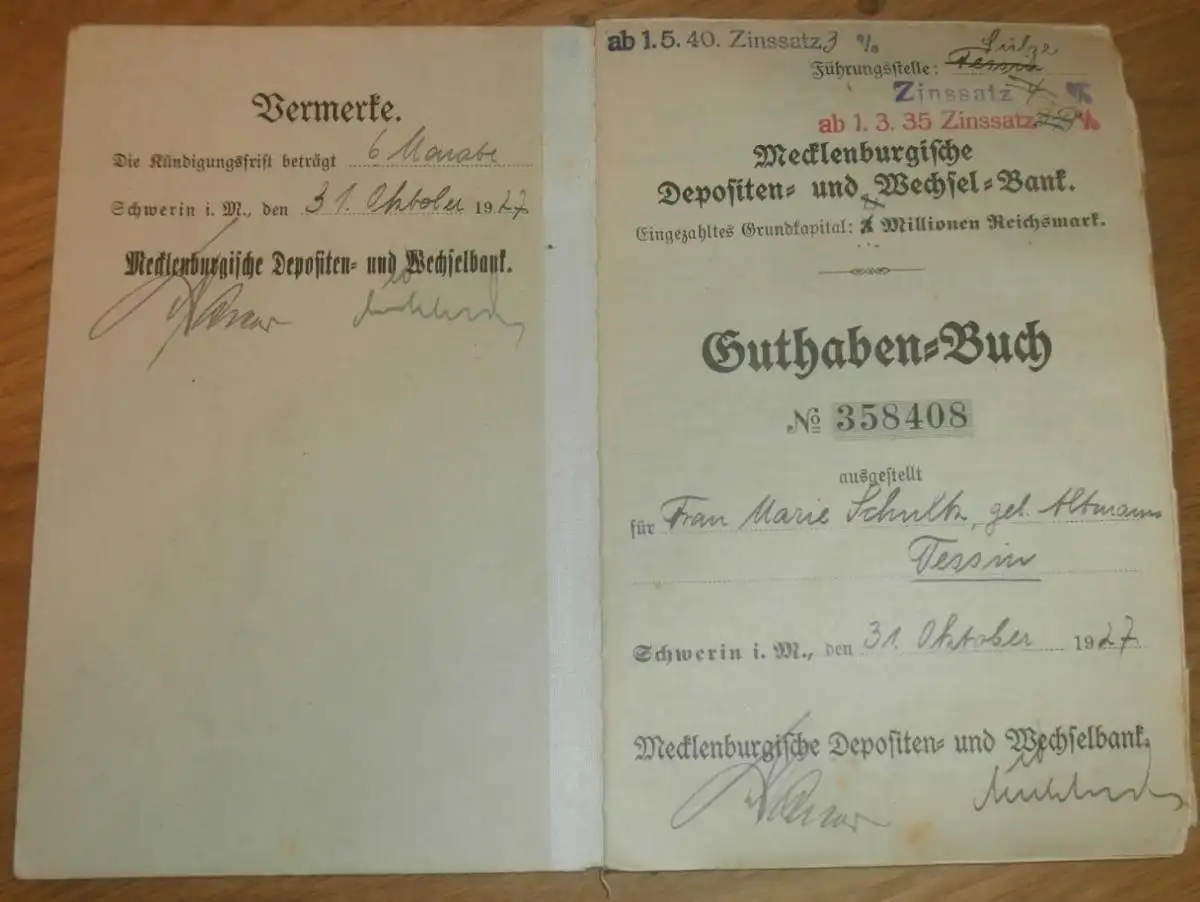 Vermerke.
Die Kündigungsfrist beträgt 6 Monate
Schwerin i. M., den 31. Oktober 1927
Mecklenburgische Depositen- und Wechselbank.
ab 1. 5. 40. Zinssatz 3 %
Sülze
Führungsstelle: Tessin
Zinssatz 4 %
ab 1. 3. 35 Zinssatz %
Mecklenburgische
Depositen- und Wechsel-Bank.
Eingezahltes Grundkapital: 4 Millionen Reichsmark.
Guthaben-Buch
№ 358408
ausgestellt
für Frau Marie Schultz, geb. Altmann
Tessin
Schwerin i. M., den 31. Oktober 1927
Mecklenburgische Depositen- und Wechselbank.